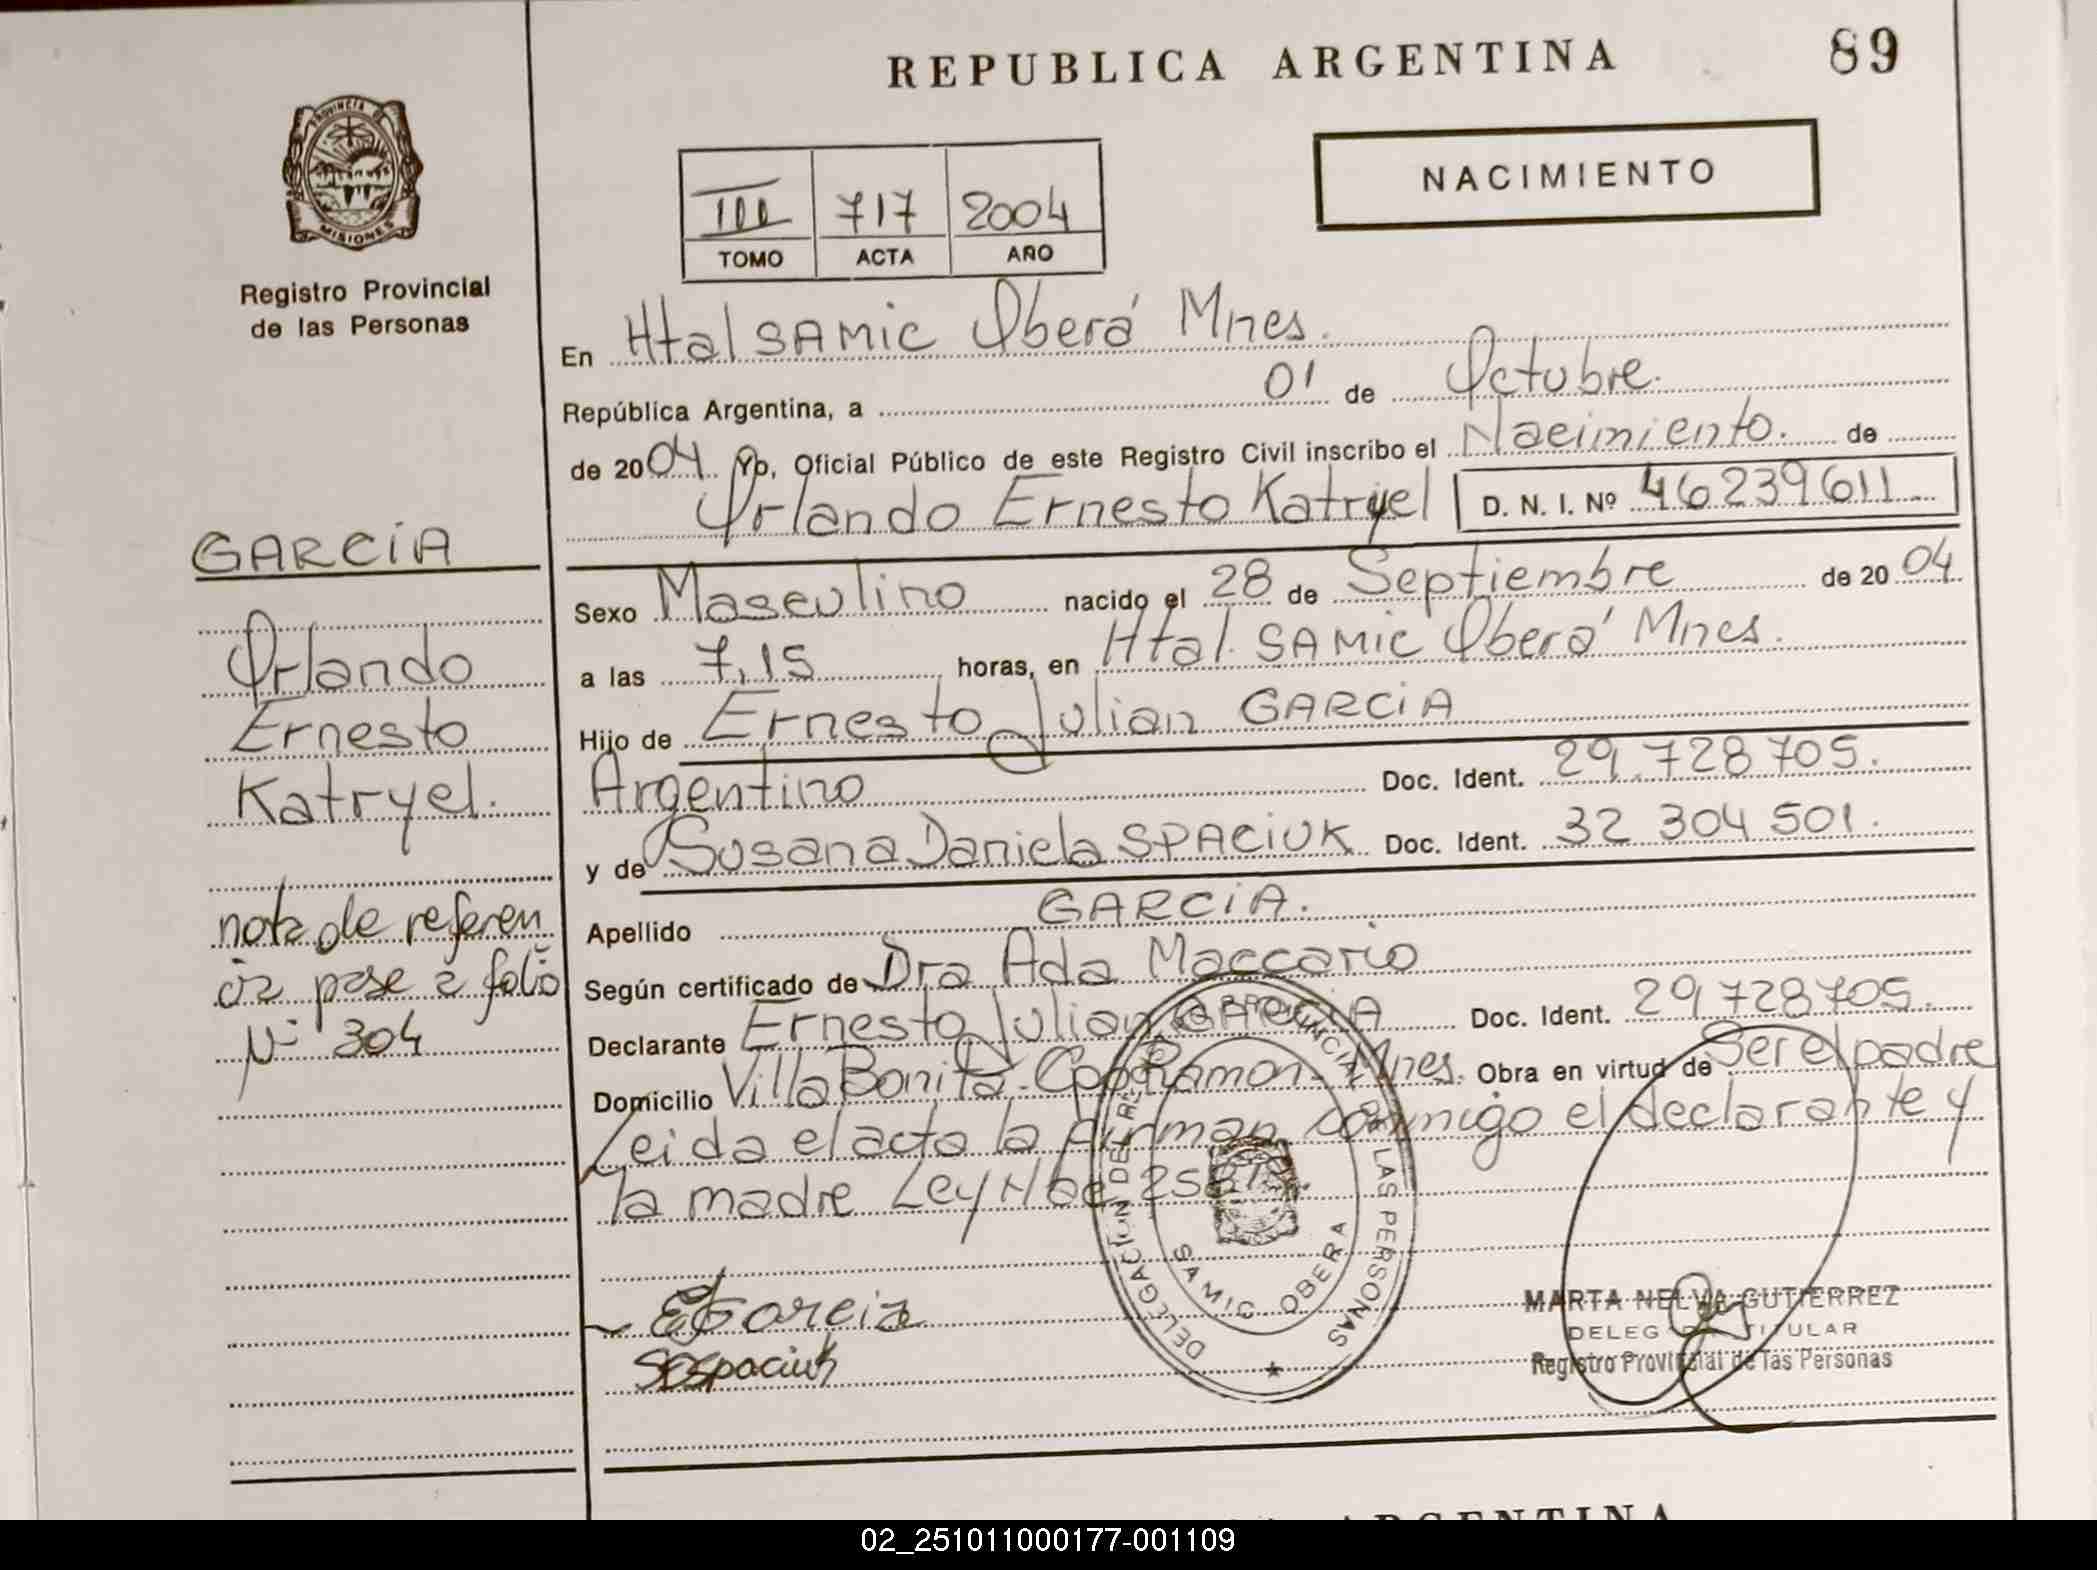 REPUBLICA ARGENTINA
89
PROVINCIA DE
MISIONES
Registro Provincial
de las Personas
III 717 2004
TOMO ACTA AÑO
NACIMIENTO
En Htal SAMIC Oberá Mnes.
República Argentina, a 01 de Octubre.
de 2004. Yo, Oficial Público de este Registro Civil inscribo el Nacimiento. de
Orlando Ernesto Katryel D. N. I. Nº 46239611
GARCIA
Orlando
Ernesto
Katryel.
nota de referen
cia pase a folio
Nº 304
Sexo Masculino nacido el 28 de Septiembre de 2004.
a las 7,15 horas, en Htal. SAMIC Oberá Mnes.
Hijo de Ernesto Julian GARCIA
Argentino Doc. Ident. 29.728705.
y de Susana Daniela SPACIUK Doc. Ident. 32 304 501.
Apellido GARCIA.
Según certificado de Dra Ada Maccario
Declarante Ernesto Julian GARCIA Doc. Ident. 29,728705.
Domicilio Villa Bonita. Cpo Ramon. Mnes. Obra en virtud de Ser el padre
Leida el acta la firman conmigo el declarante y
la madre Ley
DELEGACION DEL REG. PROVINCIAL DE LAS PERSONAS
SAMIC OBERA
EGarcia
SDSpaciuk
MARTA NELVA GUTIERREZ
DELEGADA TITULAR
Registro Provincial de las Personas
ARGENTINA
02_251011000177-001109